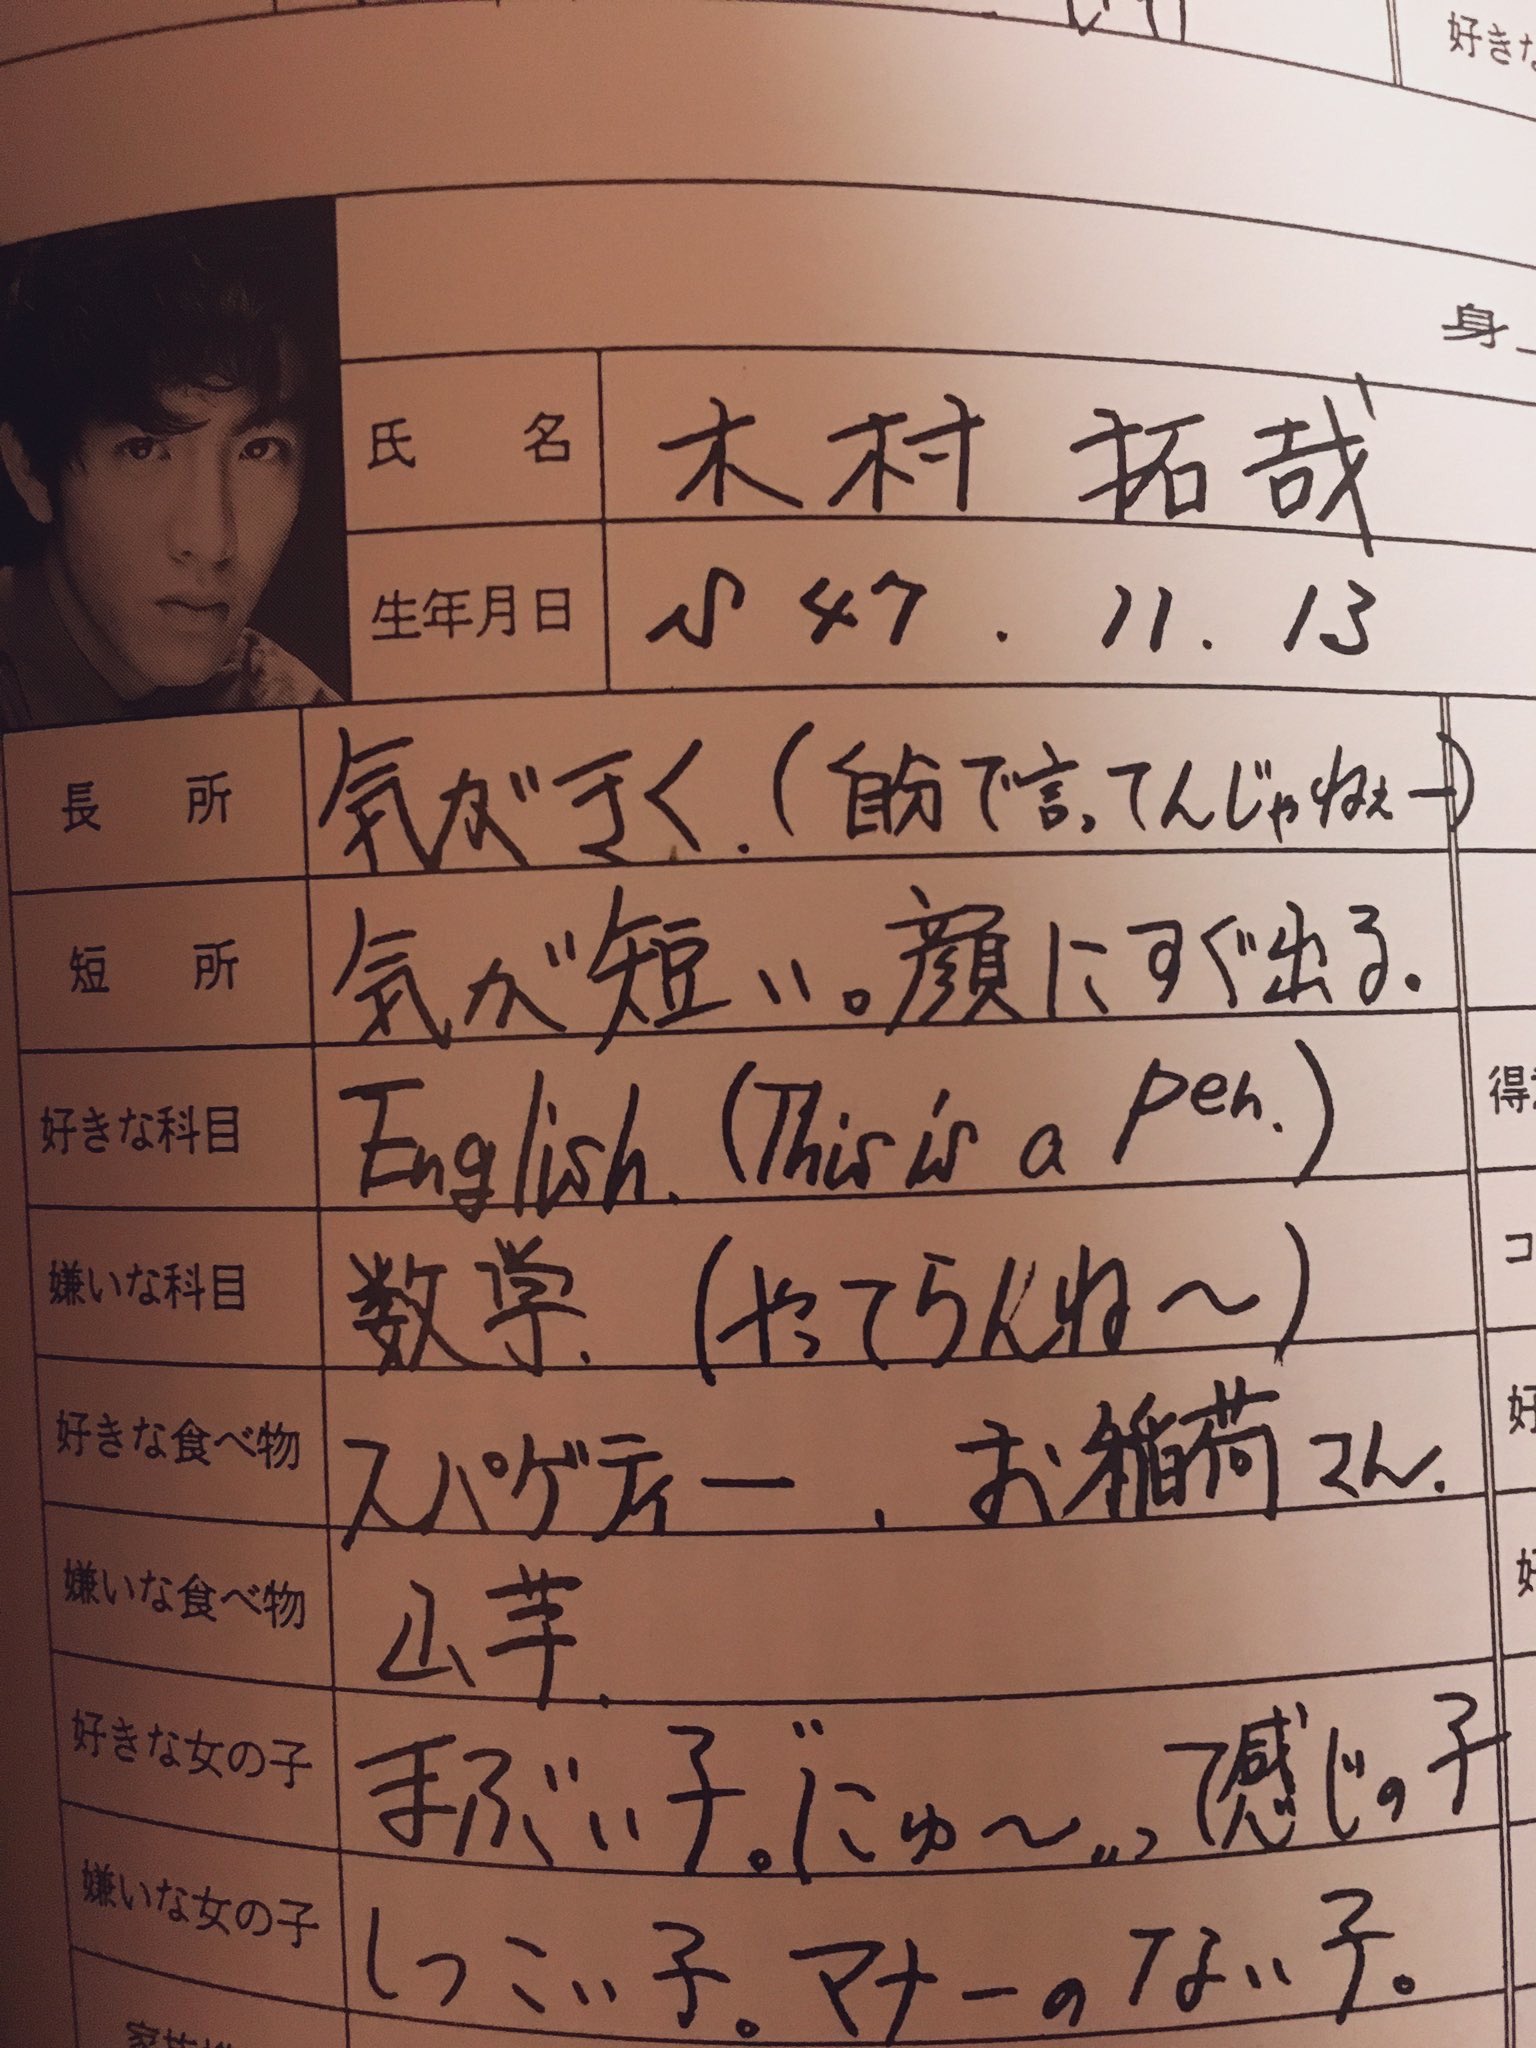 好きな
身
氏 名 木村 拓哉
生年月日 S 47 . 11 . 13
長 所 気がきく.(自分で言ってんじゃねぇー)
短 所 気が短い。顔にすぐ出る.
好きな科目 English. (This is a pen.)
得意
嫌いな科目 数学. (やってらんね〜)
コ
好きな食べ物 スパゲティー、お稲荷さん.
好
嫌いな食べ物 山芋.
好
好きな女の子 まぶい子。“にゅ〜„って感じの子
嫌いな女の子 しつこい子。マナーのない子。